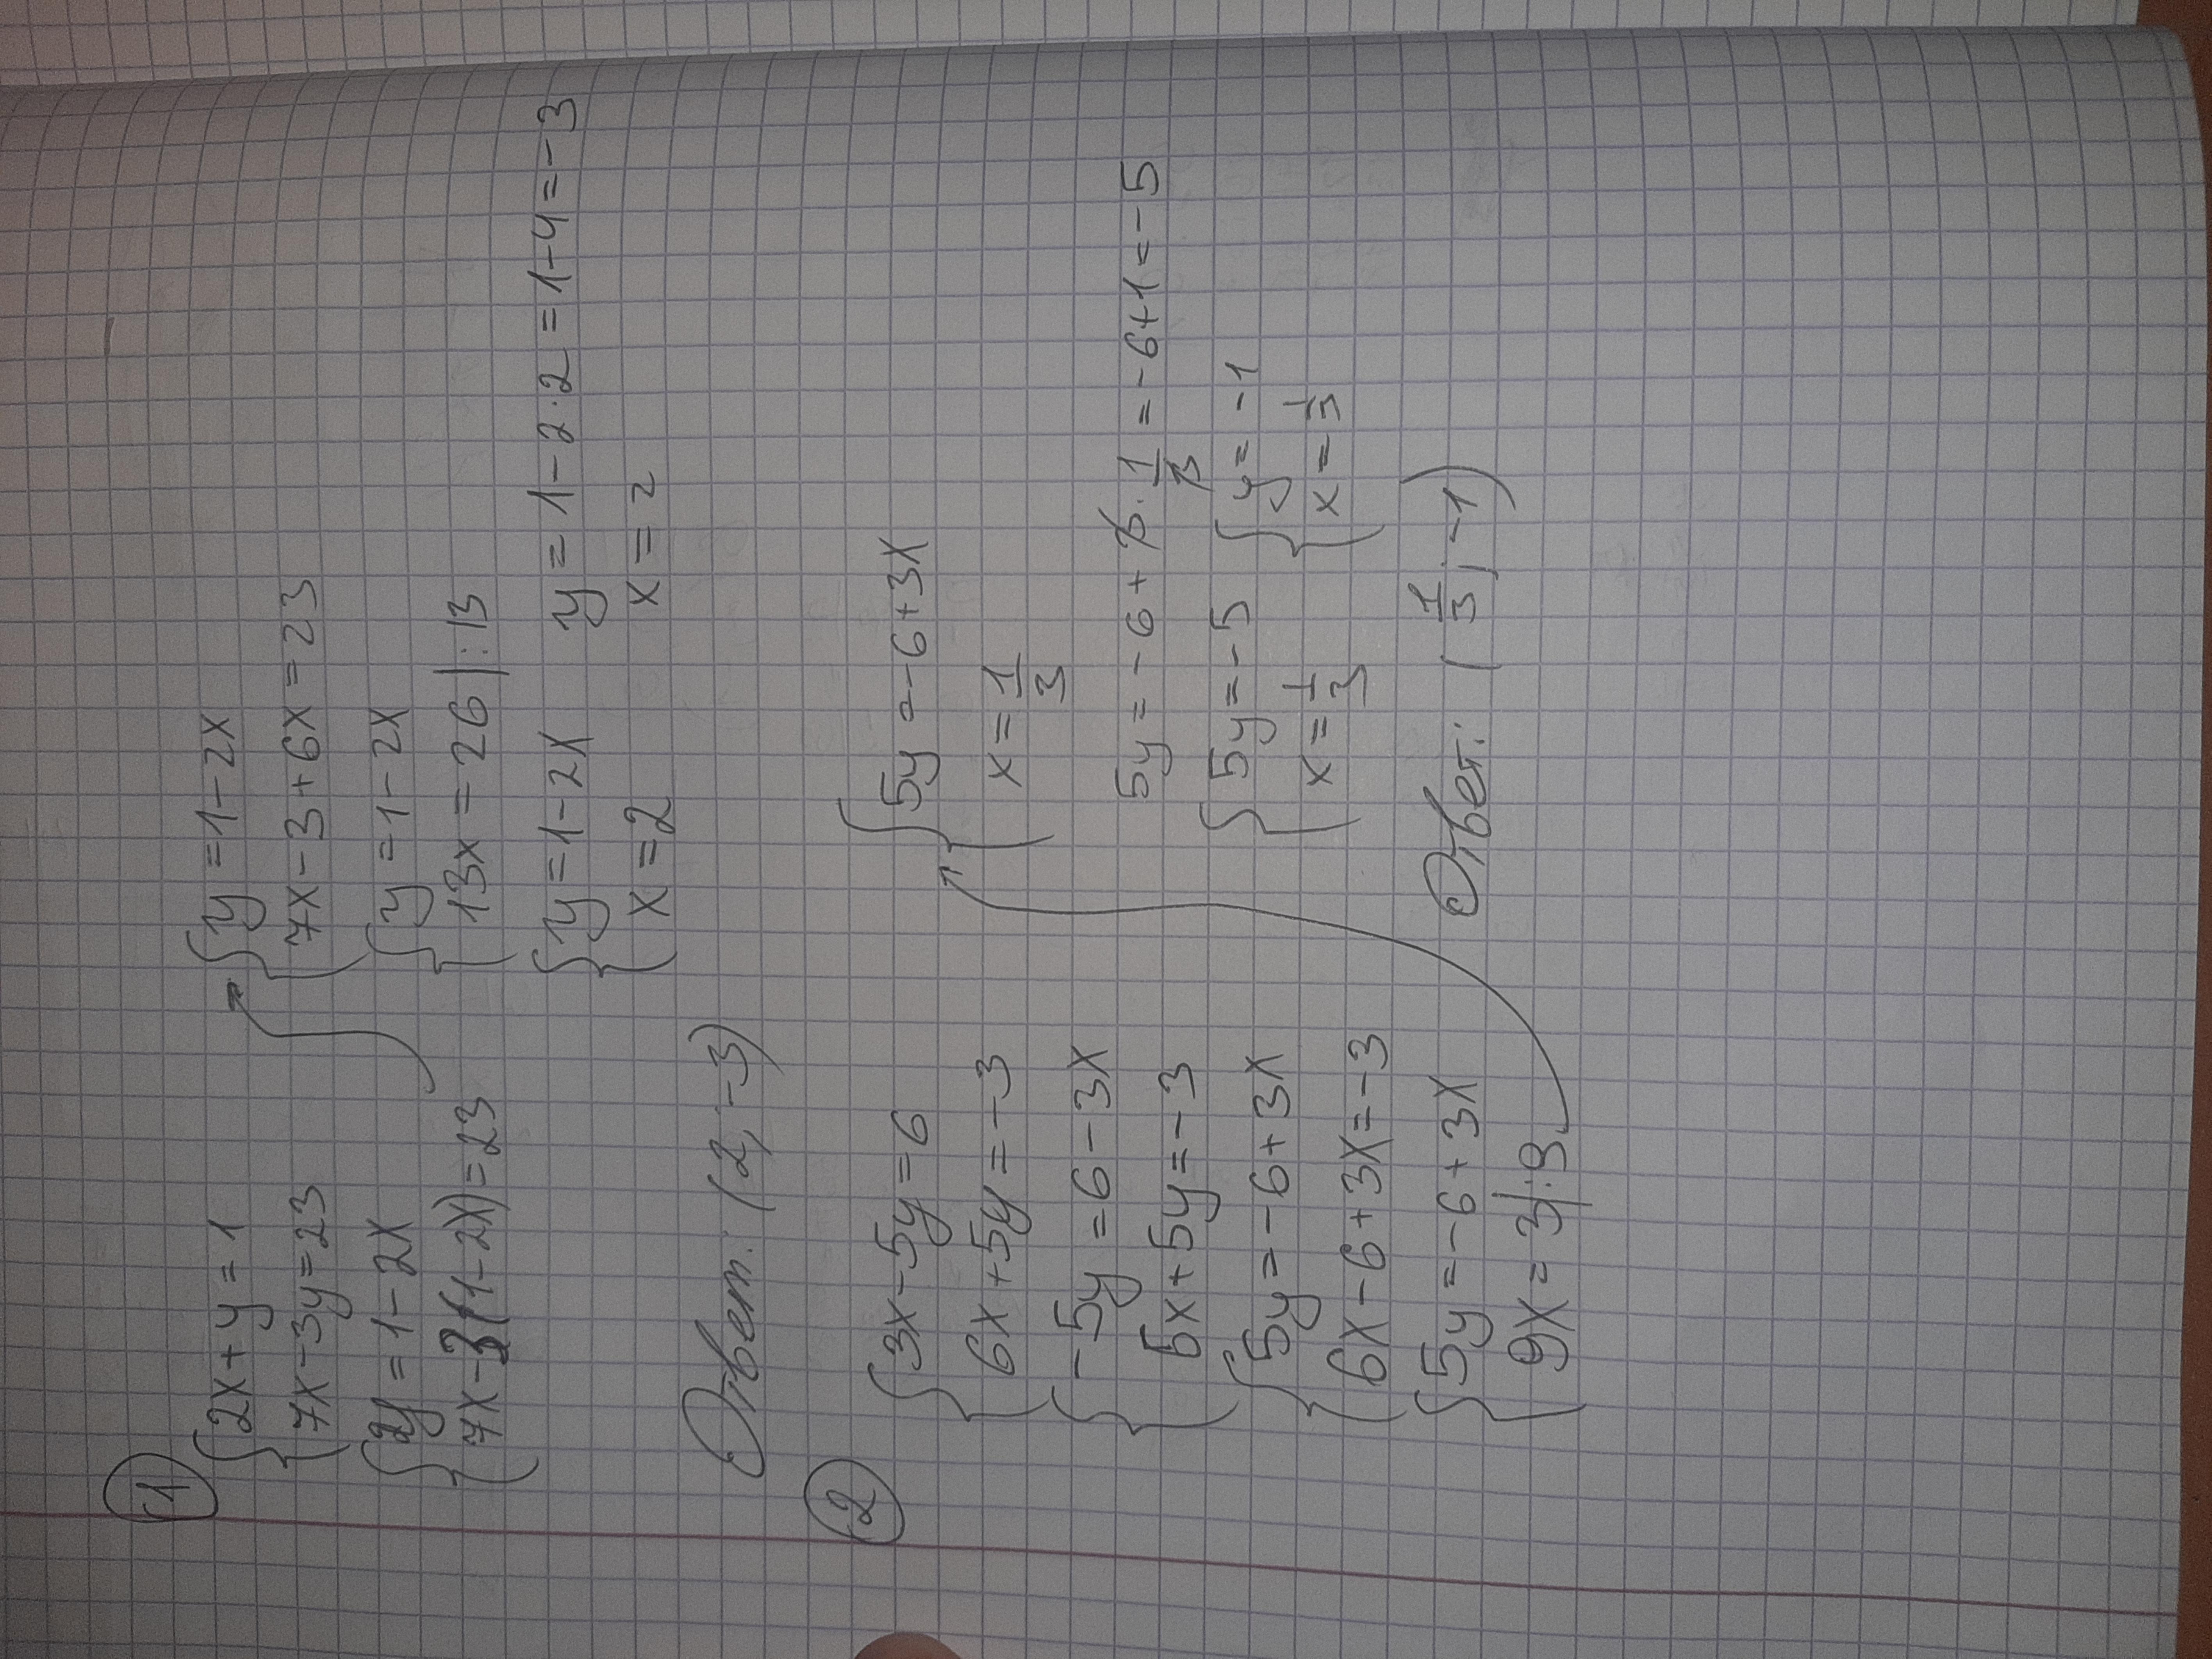 1
2x+y=1
7x-3y=23
y=1-2x
7x-3(1-2x)=23
y=1-2x
7x-3+6x=23
y=1-2x
13x=26|:13
y=1-2x y=1-2·2=1-4=-3
x=2 x=2
Ответ: (2;-3)
2
3x-5y=6
6x+5y=-3
-5y=6-3x
6x+5y=-3
5y=-6+3x
6x-6+3x=-3
5y=-6+3x
9x=3|:9
5y=-6+3x
x=1/3
5y=-6+3·1/3=-6+1=-5
5y=-5 y=-1
x=1/3 x=1/3
Ответ: (1/3;-1)